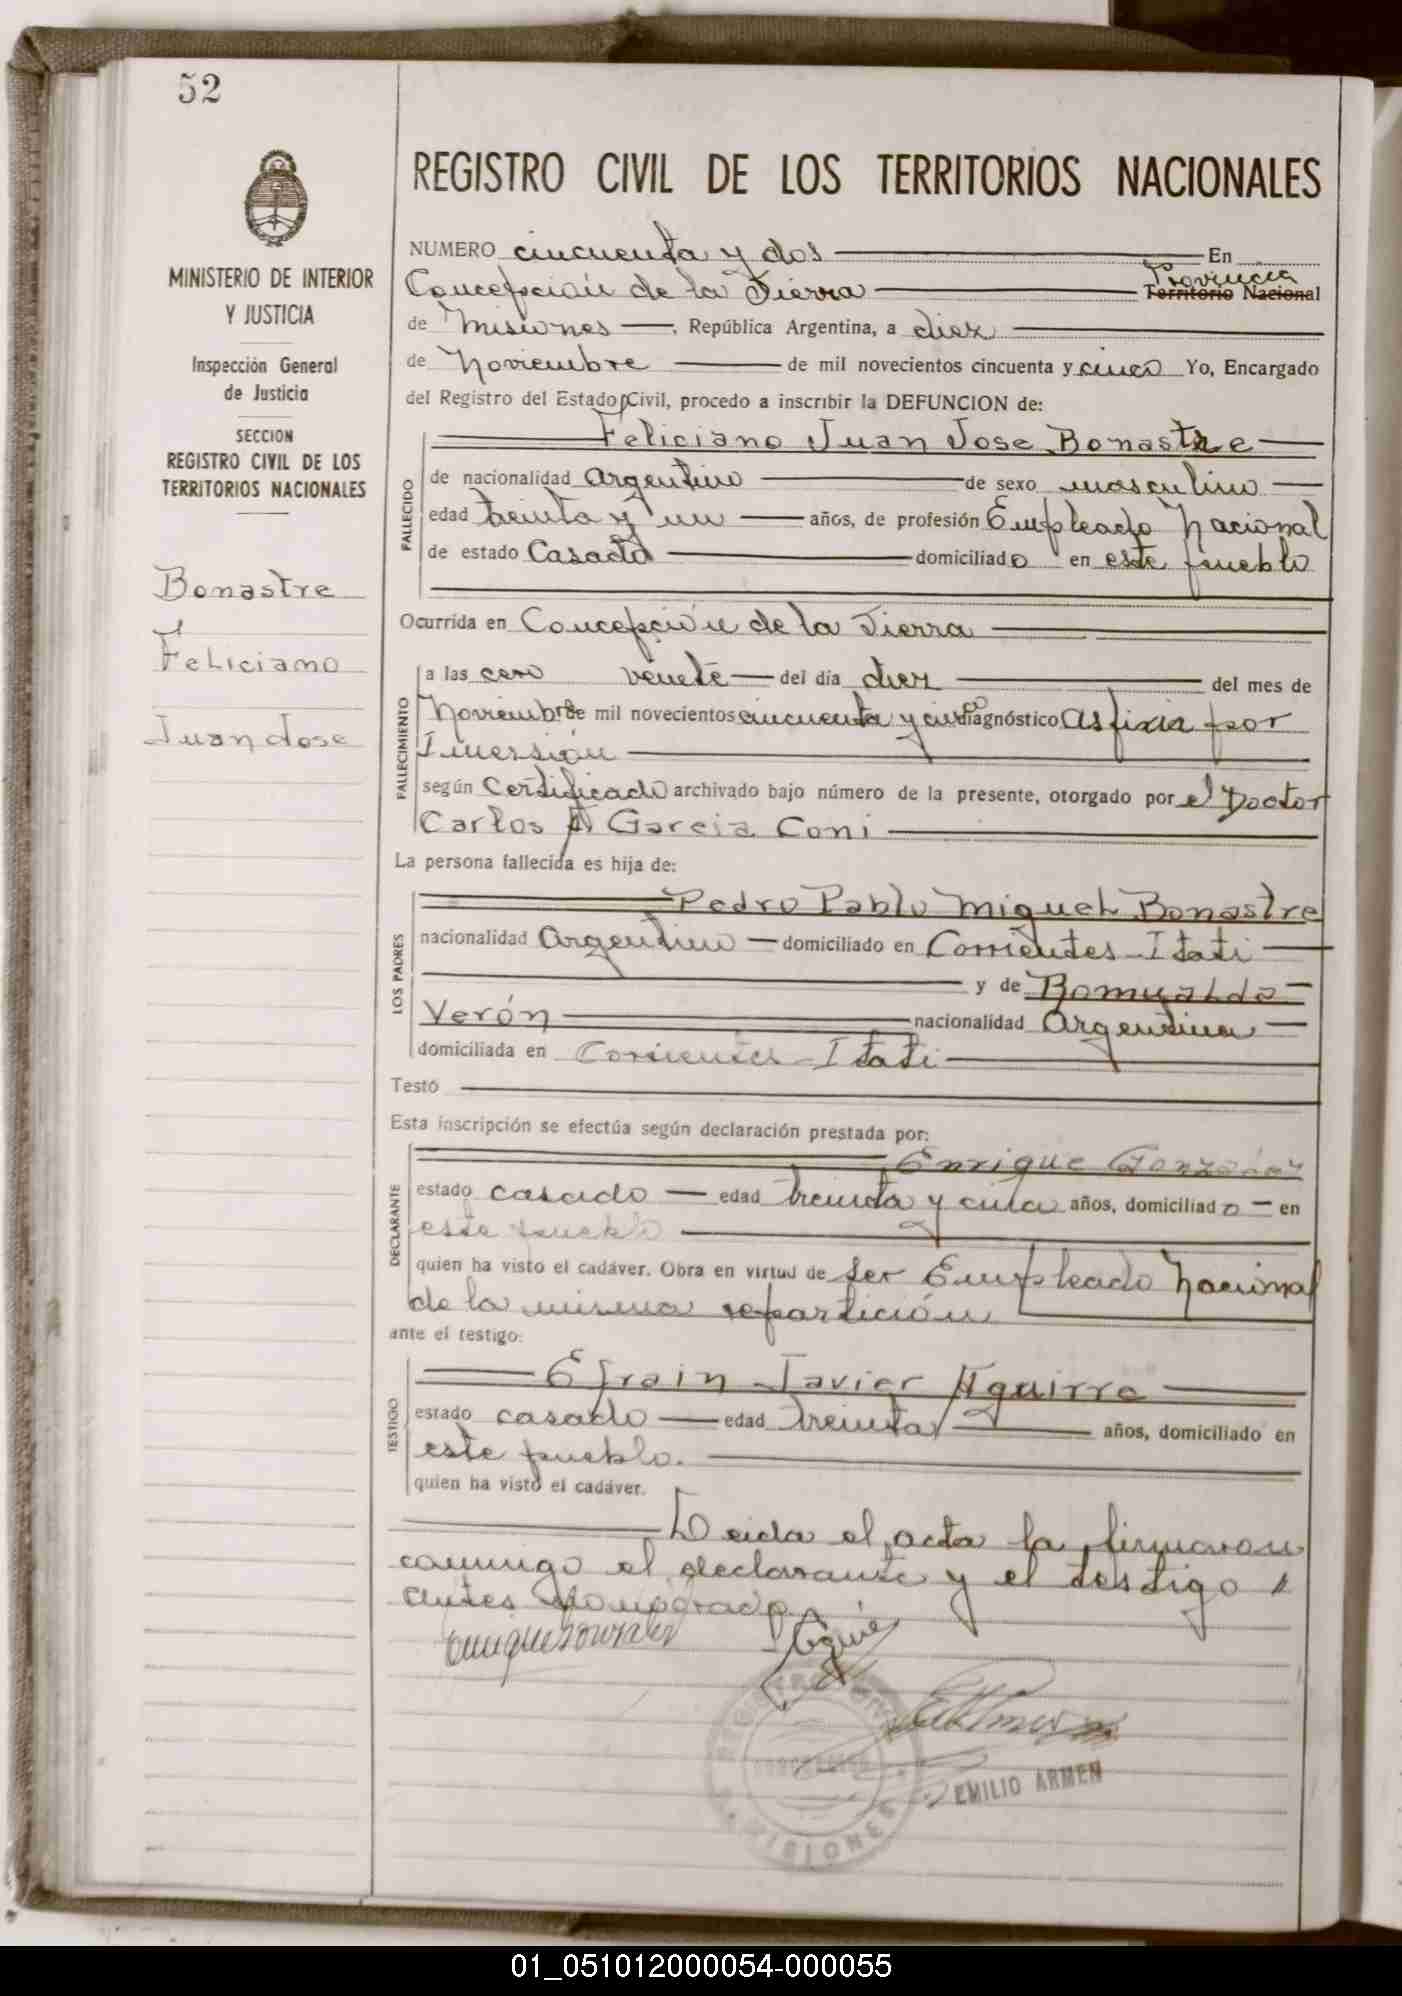 52
MINISTERIO DE INTERIOR
Y JUSTICIA
Inspección General
de Justicia
SECCION
REGISTRO CIVIL DE LOS
TERRITORIOS NACIONALES
Bonastre
Feliciano
Juan Jose
REGISTRO CIVIL DE LOS TERRITORIOS NACIONALES
NUMERO cincuenta y dos En
Provincia
Concepción de la Sierra Territorio Nacional
de Misiones, República Argentina, a diez
de Noviembre de mil novecientos cincuenta y cinco Yo, Encargado
del Registro del Estado Civil, procedo a inscribir la DEFUNCION de:
FALLECIDO
Feliciano Juan Jose Bonastre
de nacionalidad Argentino de sexo masculino
edad treinta y un años, de profesión Empleado Nacional
de estado Casado domiciliado en este pueblo
Ocurrida en Concepción de la Sierra
FALLECIMIENTO
a las cero veinte del día diez del mes de
Noviembre de mil novecientos cincuenta y cinco diagnóstico Asfixia por
Inmersión
según Certificado archivado bajo número de la presente, otorgado por el Doctor
Carlos A Garcia Coni
La persona fallecida es hija de:
LOS PADRES
Pedro Pablo Miguel Bonastre
nacionalidad Argentino domiciliado en Corrientes - Itati
y de Romualda
Verón nacionalidad Argentina
domiciliada en Corrientes - Itati
Testó
Esta inscripción se efectúa según declaración prestada por:
DECLARANTE
Enrique Gonzalez
estado casado edad treinta y años, domiciliado en
este pueblo
quien ha visto el cadáver. Obra en virtud de ser Empleado Nacional
de la misma repartición
ante el testigo:
TESTIGO
Efrain Javier Aguirre
estado casado edad treinta años, domiciliado en
este pueblo.
quien ha visto el cadáver.
Leida el acta la firmaron
conmigo el declarante y el testigo
antes nombrado.
REGISTRO CIVIL
MISIONES
EMILIO ARMEN
01_051012000054-000055